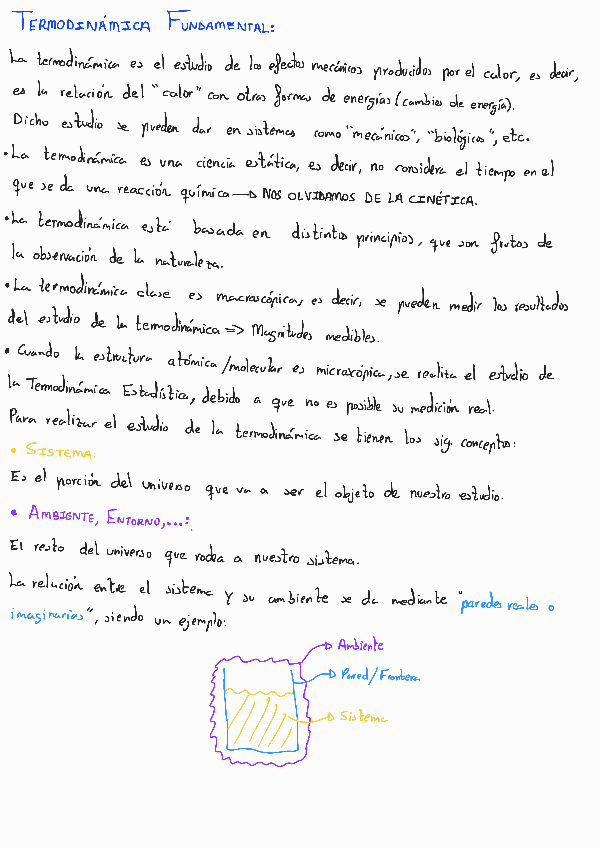 TERMODINÁMICA FUNDAMENTAL:
La termodinámica es el estudio de los efectos mecánicos producidos por el calor, es decir,
es la relación del "calor" con otras formas de energías (cambios de energía).
Dicho estudio se pueden dar en sistemas como "mecánicos", "biológicos", etc.
• La termodinámica es una ciencia estática, es decir, no considera el tiempo en el
que se da una reacción química → NOS OLVIDAMOS DE LA CINÉTICA.
• La termodinámica está basada en distintos principios, que son frutos de
la observación de la naturaleza.
• La termodinámica clase es macroscópica, es decir, se pueden medir los resultados
del estudio de la termodinámica => Magnitudes medibles.
• Cuando la estructura atómica/molecular es microscópica, se realita el estudio de
la Termodinámica Estadística, debido a que no es posible su medición real.
Para realizar el estudio de la termodinámica se tienen los sig. conceptos:
• SISTEMA:
Es el porción del universo que va a ser el objeto de nuestro estudio.
• AMBIENTE, ENTORNO,...:
El resto del universo que rodea a nuestro sistema.
La relación entre el sistema y su ambiente se da mediante "paredes reales o
imaginarias", siendo un ejemplo:
Ambiente
Pared/Frontera
Sistema